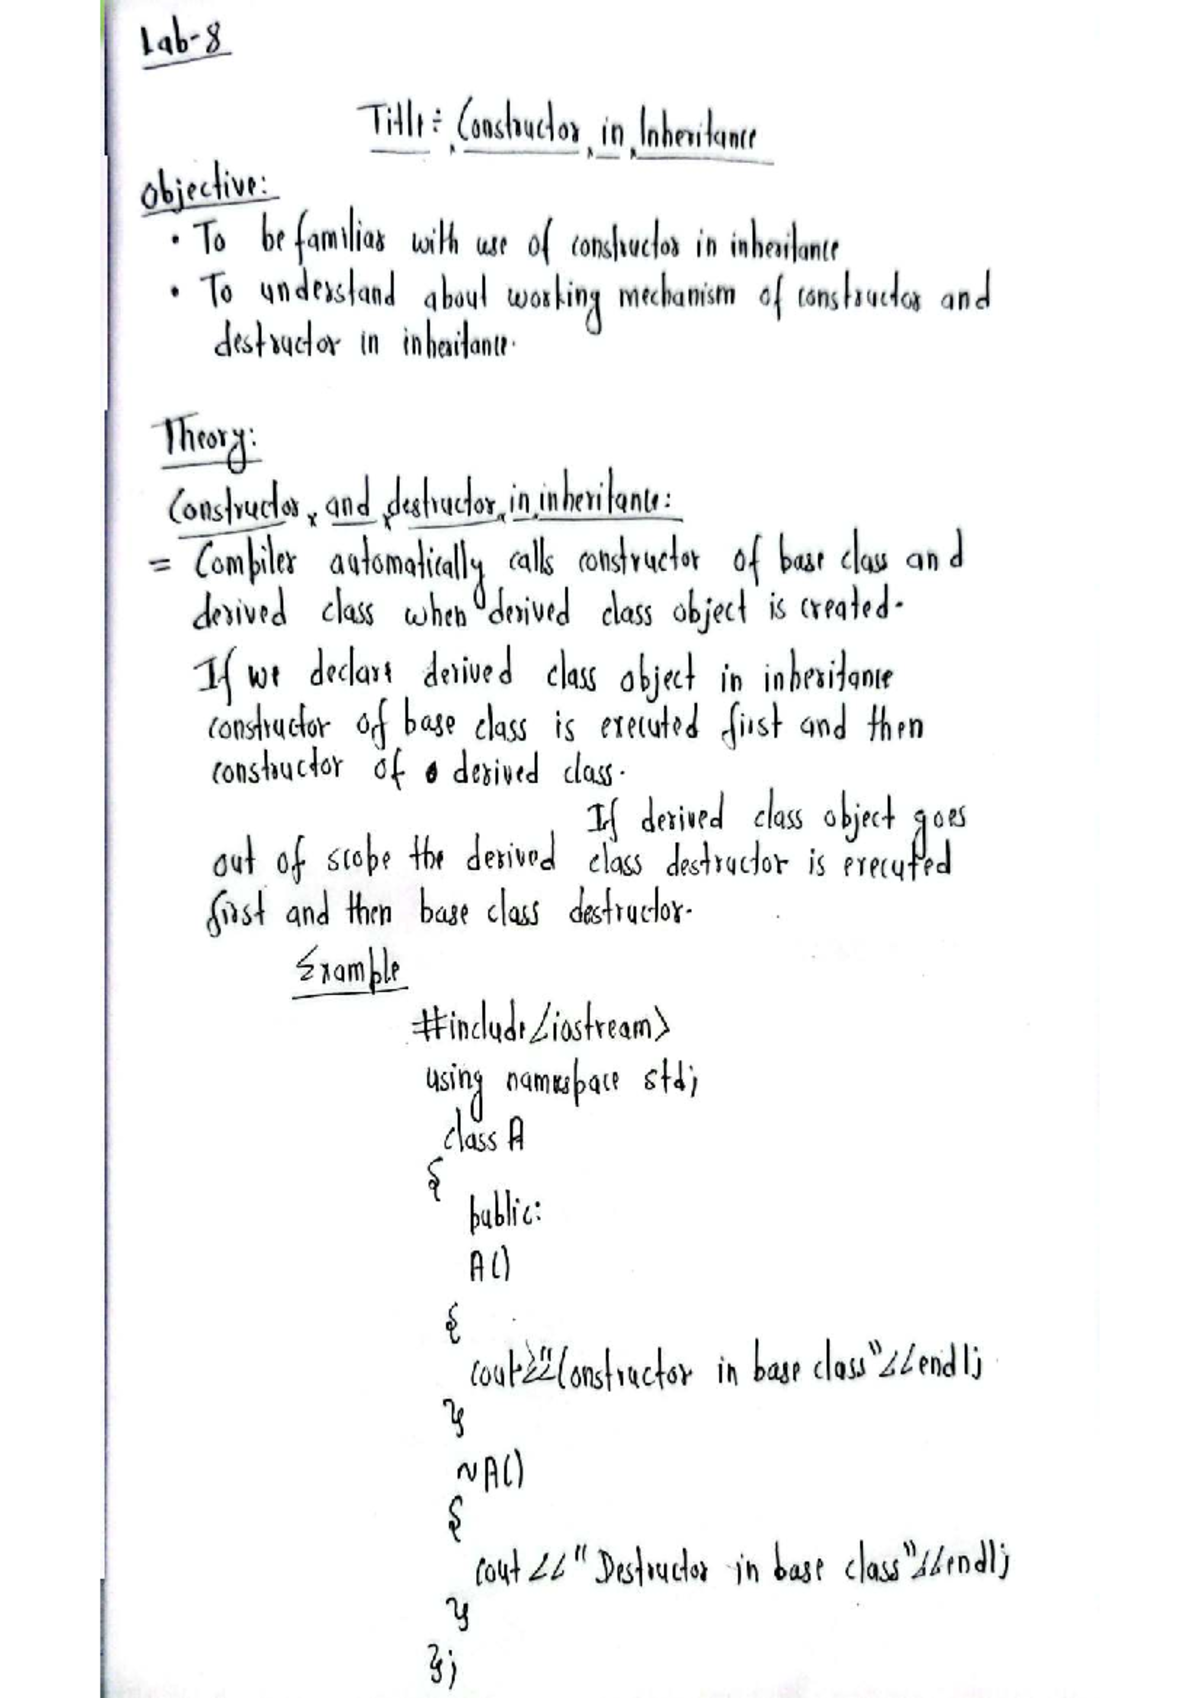 Lab-8
Title: Constructor in Inheritance
Objective:
• To be familiar with use of constructor in inheritance
• To understand about working mechanism of constructor and
destructor in inheritance.
Theory:
Constructor and destructor in inheritance:
= Compiler automatically calls constructor of base class and
derived class when derived class object is created.
If we declare derived class object in inheritance
constructor of base class is executed first and then
constructor of derived class.
If derived class object goes
out of scope the derived class destructor is executed
first and then base class destructor.
Example
#include<iostream>
using namespace std;
class A
{
public:
A()
{
cout<<"Constructor in base class"<<endl;
}
~A()
{
cout<<"Destructor in base class"<<endl;
}
};